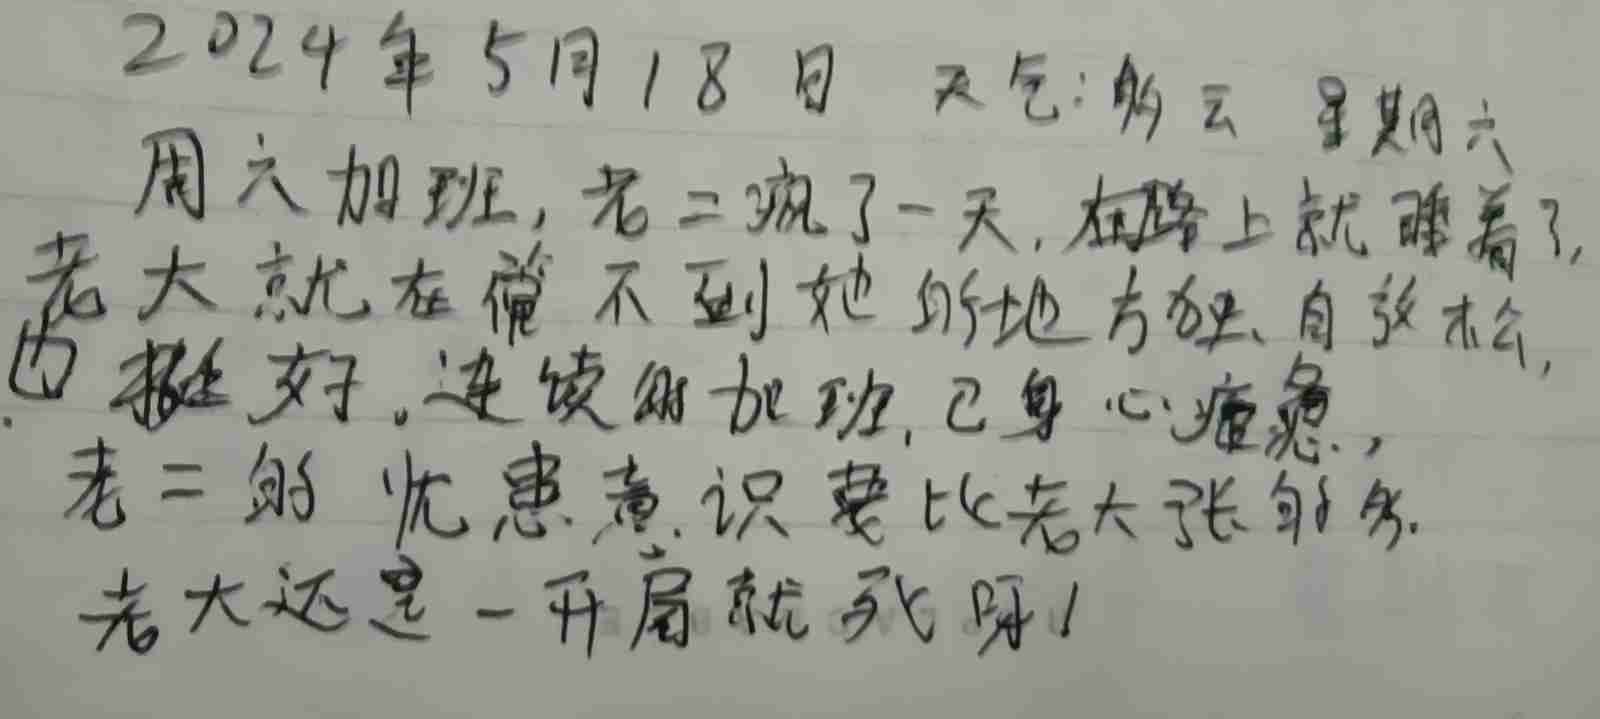 2024年5月18日 天气:多云 星期六
周六加班,老二疯了一天,在路上就睡着了,
老大就在管不到她的地方独自放松,
也挺好。连续的加班,已身心疲惫,
老二的忧患意识要比老大强的多.
老大还是一开局就死呀!